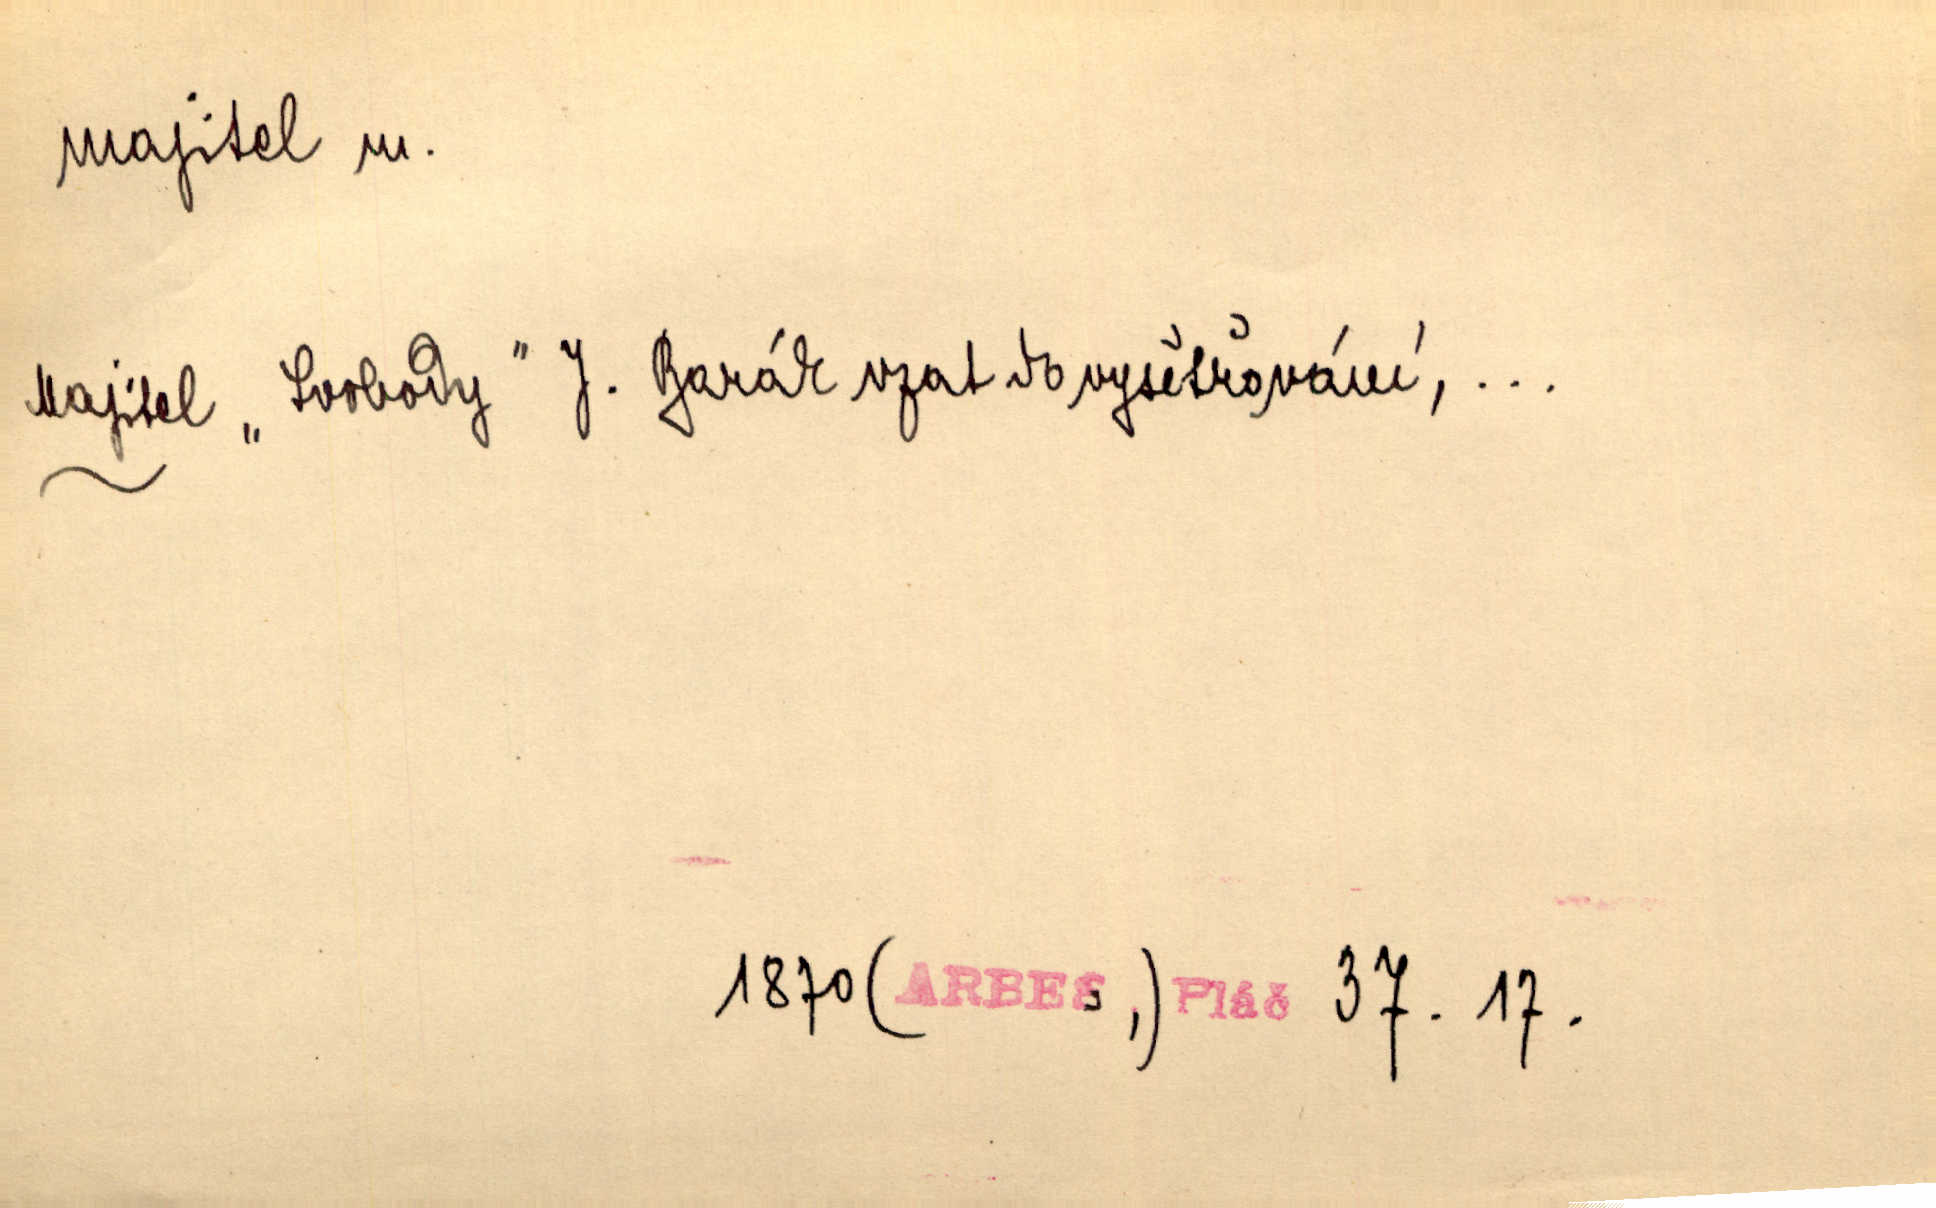 majitel m.
Majitel „Svobody" J. Barák vzat do vyšetřování, ...
1870 (ARBES,) Pláč 37. 17.